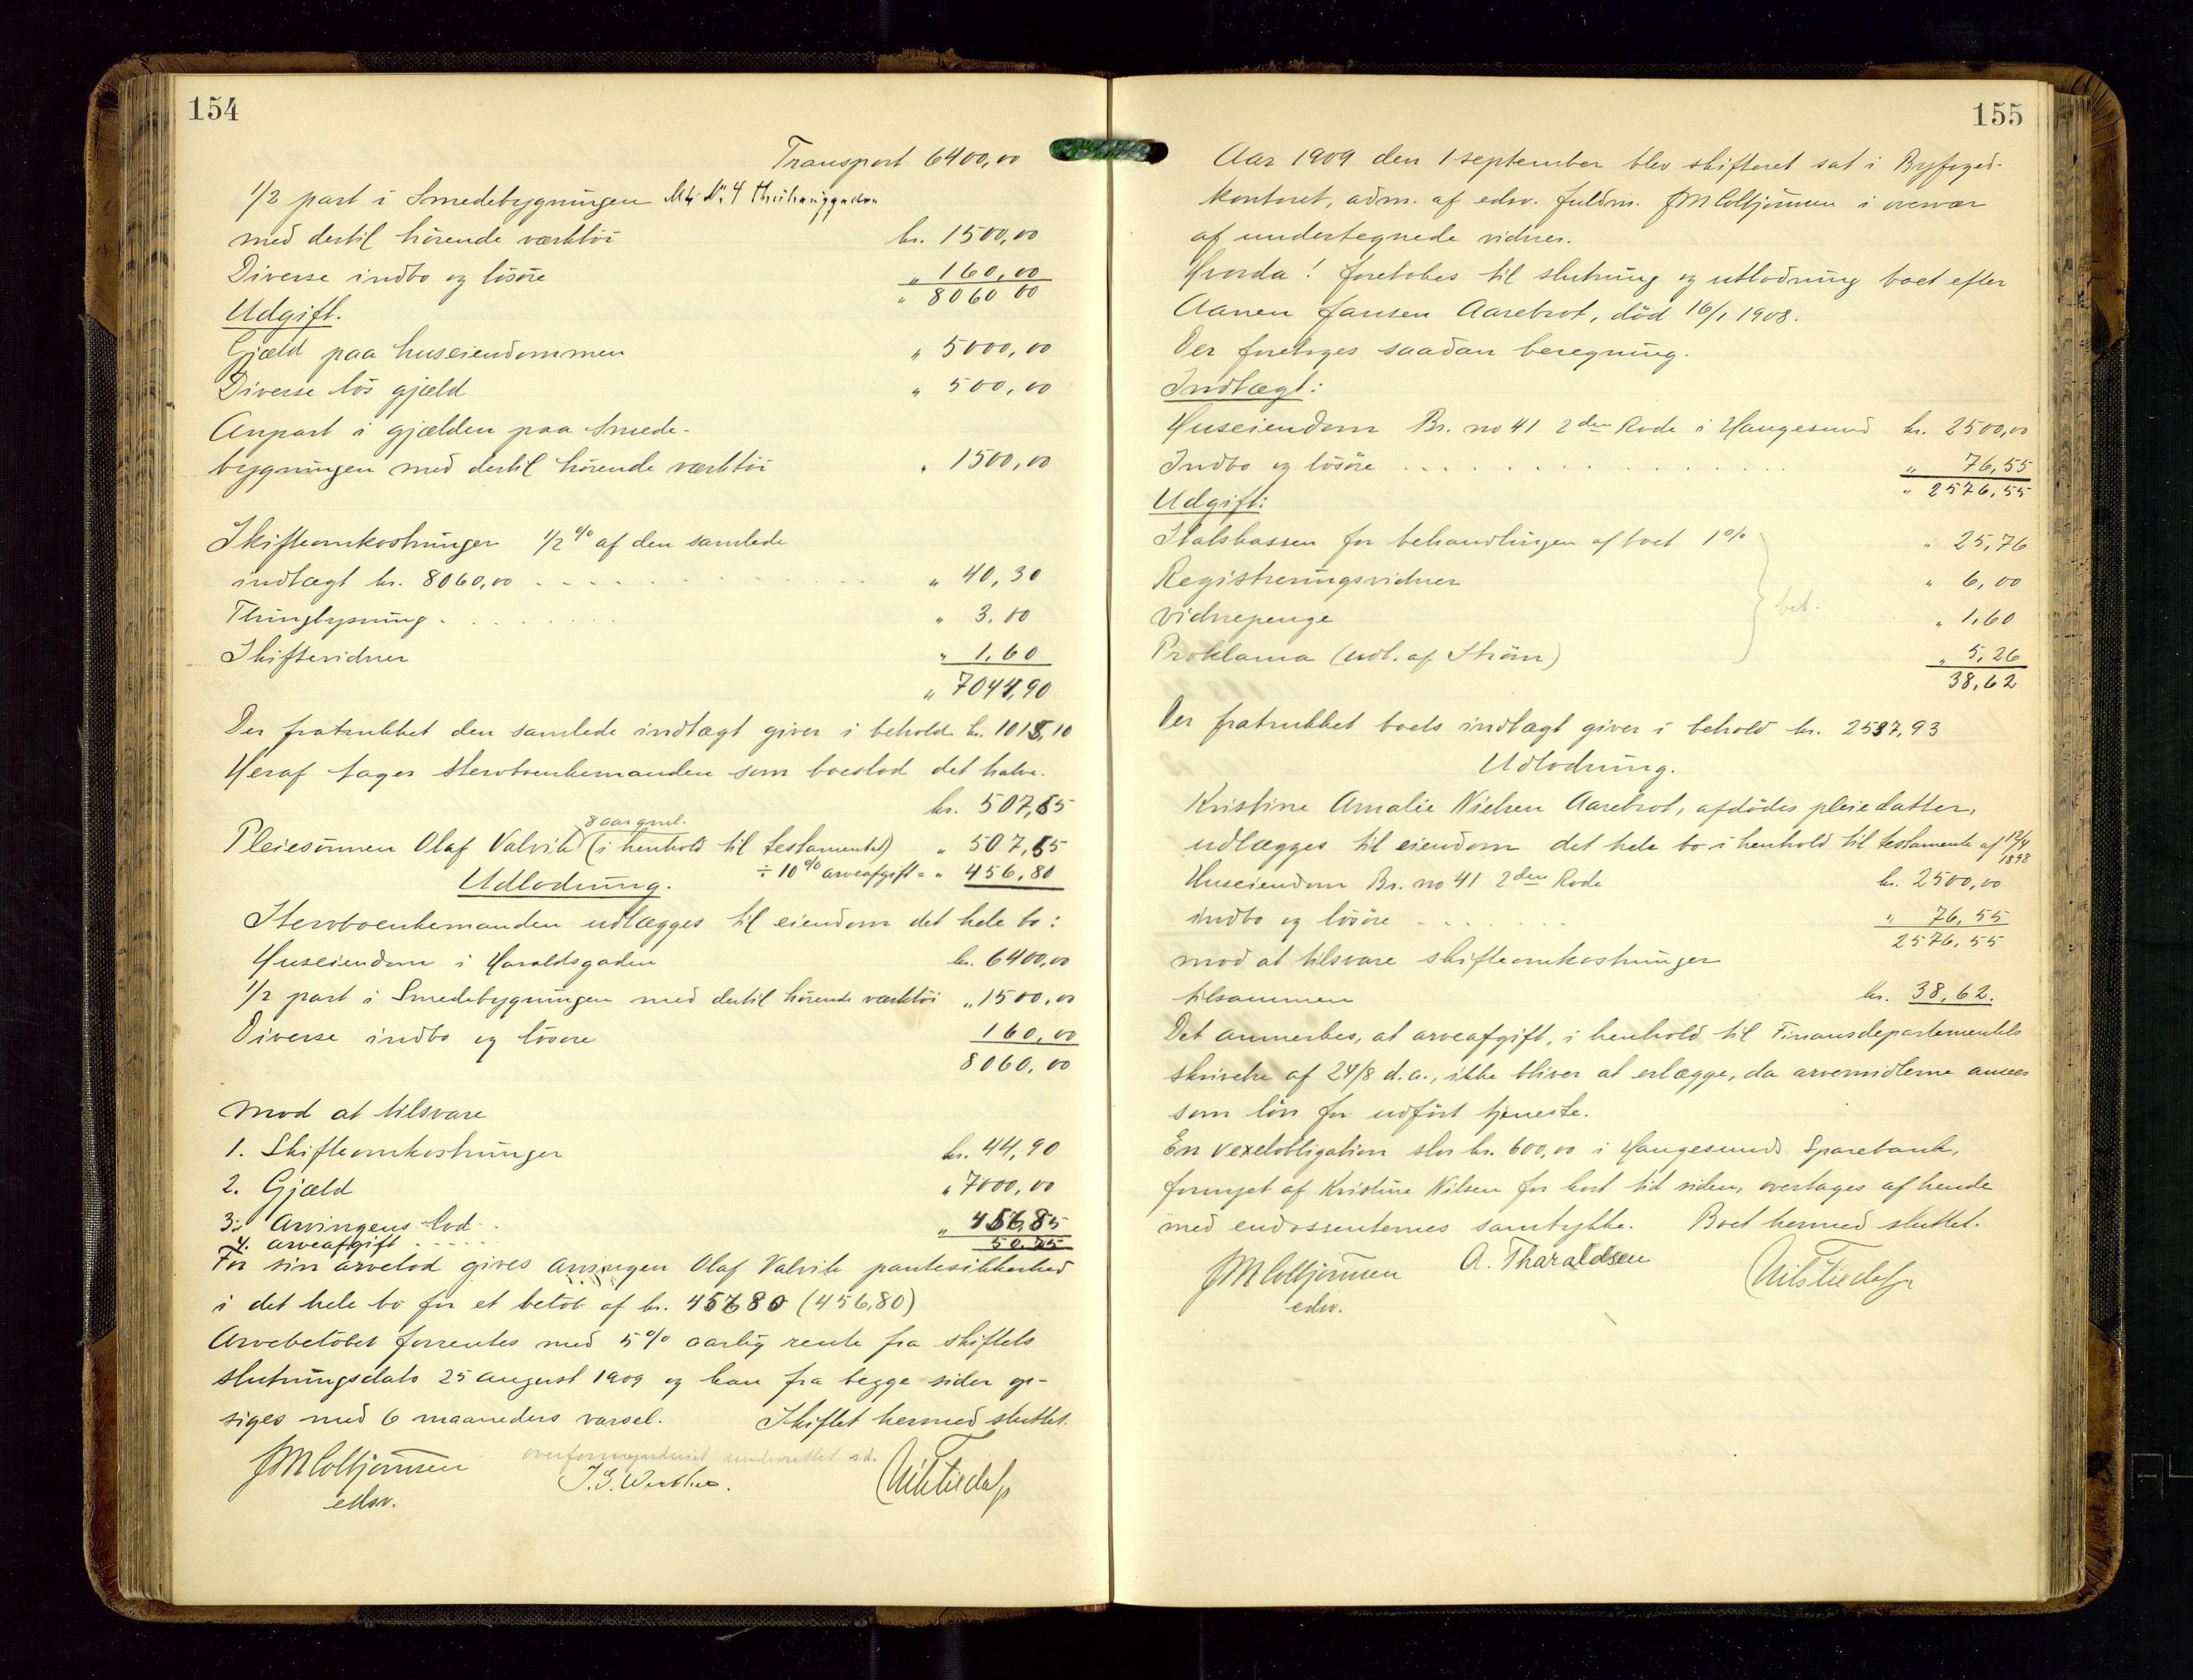 154
Transport 6400,00
1/2 part i Smedebygningen Mt. No. 4
med dertil hörende værktöi kr. 1500,00
Diverse indbo og lösöre " 160,00
" 8060 00
Udgift.
Gjæld paa huseiendommen " 5000,00
Diverse lös gjæld " 500,00
Anpart i gjælden paa Smede-
bygningen med dertil hörende værktöi " 1500,00
Skifteomkostninger 1/2 % af den samlede
indtægt kr. 8060,00 " 40,30
Thinglysning " 3,00
Skiftevidner " 1,60
" 7044,90
Der fratrukket den samlede indtægt giver i behold kr. 1015,10
Heraf tager sterboenkemanden som boeslod det halve.
kr. 507,55
8 aar gml.
Pleiesönnen Olaf Valvik (i henhold til testamentet) " 507,55
÷ 10 % arveafgift = " 456,80
Udlodning.
Sterboenkemanden udlægges til eiendom det hele bo:
Huseiendom i Haraldsgaden kr. 6400,00
1/2 part i Smedebygningen med dertil hörende værktöi " 1500,00
Diverse indbo og lösöre 160,00
8060,00
mod at tilsvare
1. Skifteomkostninger kr. 44,90
2. Gjæld " 7000,00
3. Arvingens lod "
4. arveafgift 50,75
For sin arvelod gives arvingen Olaf Valvik pantesikkerhed
i det hele bo for et belöb af kr. 456,80 (456,80)
Arvebelöbet forrentes med 5 % aarlig rente fra skiftets
slutningsdato 25 august 1909 og kan fra begge sider op-
siges med 6 maaneders varsel. Skiftet hermed sluttet.
overformynderiet underrettet s.d.
JM Colbjörnsen
edsv.
155
Aar 1909 den 1 september blev skifteret sat i Byfoged-
kontoret, adm. af edsv. fuldm. JM Colbjörnsen i overvær
af undertegnede vidner.
Hvorda! foretokes til slutning og utlodning boet efter
Aanen Jansen Aarebrot, död 16/1 1908.
Der foretoges saadan beregning.
Indtægt:
Huseiendom Br. no 41 2den Rode i Haugesund kr. 2500,00
Indbo og lösöre " 76,55
" 2576,55
Udgift:
Statskassen for behandlingen af boet 1 % " 25,76
Registreringsvidner " 6,00
bet.
vidnepenge " 1,60
Proklama (udl. af Ström) " 5,26
38,62
Der fratrukket boets indtægt giver i behold kr. 2537,93
Udlodning.
Kristine Amalie Nielsen Aarebrot, afdödes pleiedatter,
udlægges til eiendom det hele bo i henhold til testamente af 12/4
1898
Huseiendom Br. no 41 2den Rode kr. 2500,00
indbo og lösöre " 76,55
2576,55
mod at tilsvare skifteomkostninger
tilsammen kr. 38,62.
Det anmerkes, at arveafgift, i henhold til Finansdepartementets
skrivelse af 24/8 d.a., ikke bliver at erlægge, da arvemidlerne ansees
som lön for udfört tjeneste.
En vexelobligation stor kr. 600,00 i Haugesunds Sparebank,
fornyet af Kristine Nilsen for kort tid siden, overtages af hende
med endossenternes samtykke. Boet hermed sluttet.
JM Colbjörnsen A. Tharaldsen
edsv.